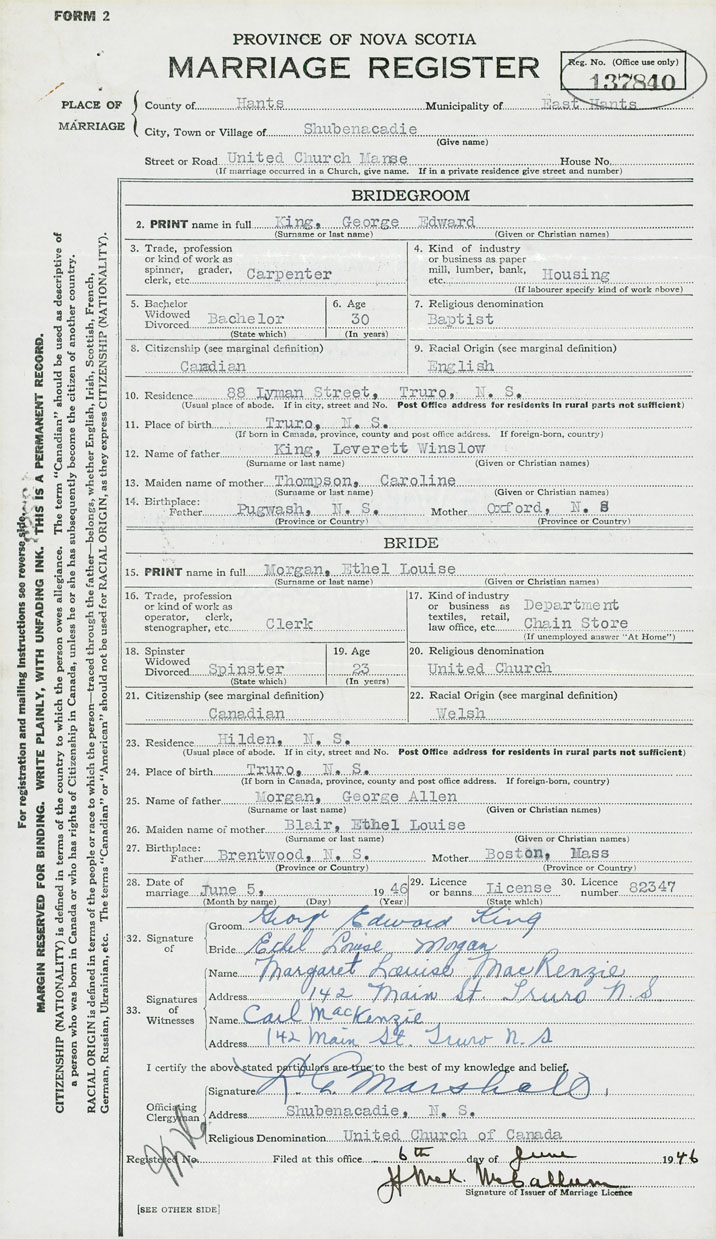 FORM 2
PROVINCE OF NOVA SCOTIA
MARRIAGE REGISTER
Reg. No. (Office use only)
137840
PLACE OF MARRIAGE
County of Hants Municipality of East Hants
City, Town or Village of Shubenacadie
(Give name)
Street or Road United Church Manse House No.
(If marriage occurred in a Church, give name. If in a private residence give street and number)
BRIDEGROOM
2. PRINT name in full King, George Edward
(Surname or last name) (Given or Christian names)
3. Trade, profession or kind of work as spinner, grader, clerk, etc. Carpenter
4. Kind of industry or business as paper mill, lumber, bank, etc. Housing
(If labourer specify kind of work above)
5. Bachelor Widowed Divorced Bachelor
(State which)
6. Age 30
(In years)
7. Religious denomination
Baptist
8. Citizenship (see marginal definition)
Candian
9. Racial Origin (see marginal definition)
English
10. Residence 88 Lyman Street, Truro, N. S.
(Usual place of abode. If in city, street and No. Post Office address for residents in rural parts not sufficient)
11. Place of birth Truro, N. S.
(If born in Canada, province, county and post office address. If foreign-born, country)
12. Name of father King, Leverett Winslow
(Surname or last name) (Given or Christian names)
13. Maiden name of mother Thompson, Caroline
(Surname or last name) (Given or Christian names)
14. Birthplace: Father Pugwash, N. S. Mother Oxford, N. S
(Province or Country) (Province or Country)
BRIDE
15. PRINT name in full Morgan, Ethel Louise
(Surname or last name) (Given or Christian names)
16. Trade, profession or kind of work as operator, clerk, stenographer, etc. Clerk
17. Kind of industry or business as textiles, retail, law office, etc. Department Chain Store
(If unemployed answer "At Home")
18. Spinster Widowed Divorced Spinster
(State which)
19. Age 23
(In years)
20. Religious denomination
United Church
21. Citizenship (see marginal definition)
Canadian
22. Racial Origin (see marginal definition)
Welsh
23. Residence Hilden, N. S.
(Usual place of abode. If in city, street and No. Post Office address for residents in rural parts not sufficient)
24. Place of birth Truro, N. S.
(If born in Canada, province, county and post office address. If foreign-born, country)
25. Name of father Morgan, George Allen
(Surname or last name) (Given or Christian names)
26. Maiden name of mother Blair, Ethel Louise
(Surname or last name) (Given or Christian names)
27. Birthplace: Father Brentwood, N. S. Mother Boston, Mass
(Province or Country) (Province or Country)
28. Date of marriage June 5, 1946
(Month by name) (Day) (Year)
29. Licence or banns License
(State which)
30. Licence number 82347
32. Signature of
Groom George Edward King
Bride Ethel Louise Morgan
33. Signatures of Witnesses
Name Margaret Louise MacKenzie
Address 142 Main St. Truro N S
Name Carl MacKenzie
Address 142 Main St. Truro N. S
I certify the above stated particulars are true to the best of my knowledge and belief.
Officiating Clergyman
Signature Marshall
Address Shubenacadie, N. S.
Religious Denomination United Church of Canada
Registered No. Filed at this office 6th day of June 1946
H McK. McCallum
Signature of Issuer of Marriage Licence
[SEE OTHER SIDE]
For registration and mailing instructions see reverse side.
MARGIN RESERVED FOR BINDING. WRITE PLAINLY, WITH UNFADING INK. THIS IS A PERMANENT RECORD.
CITIZENSHIP (NATIONALITY) is defined in terms of the country to which the person owes allegiance. The term "Canadian" should be used as descriptive of
a person who was born in Canada or who has rights of Citizenship in Canada, unless he or she has subsequently become the citizen of another country.
RACIAL ORIGIN is defined in terms of the people or race to which the person—traced through the father—belongs, whether English, Irish, Scottish, French,
German, Russian, Ukrainian, etc. The terms "Canadian" or "American" should not be used for RACIAL ORIGIN, as they express CITIZENSHIP (NATIONALITY).